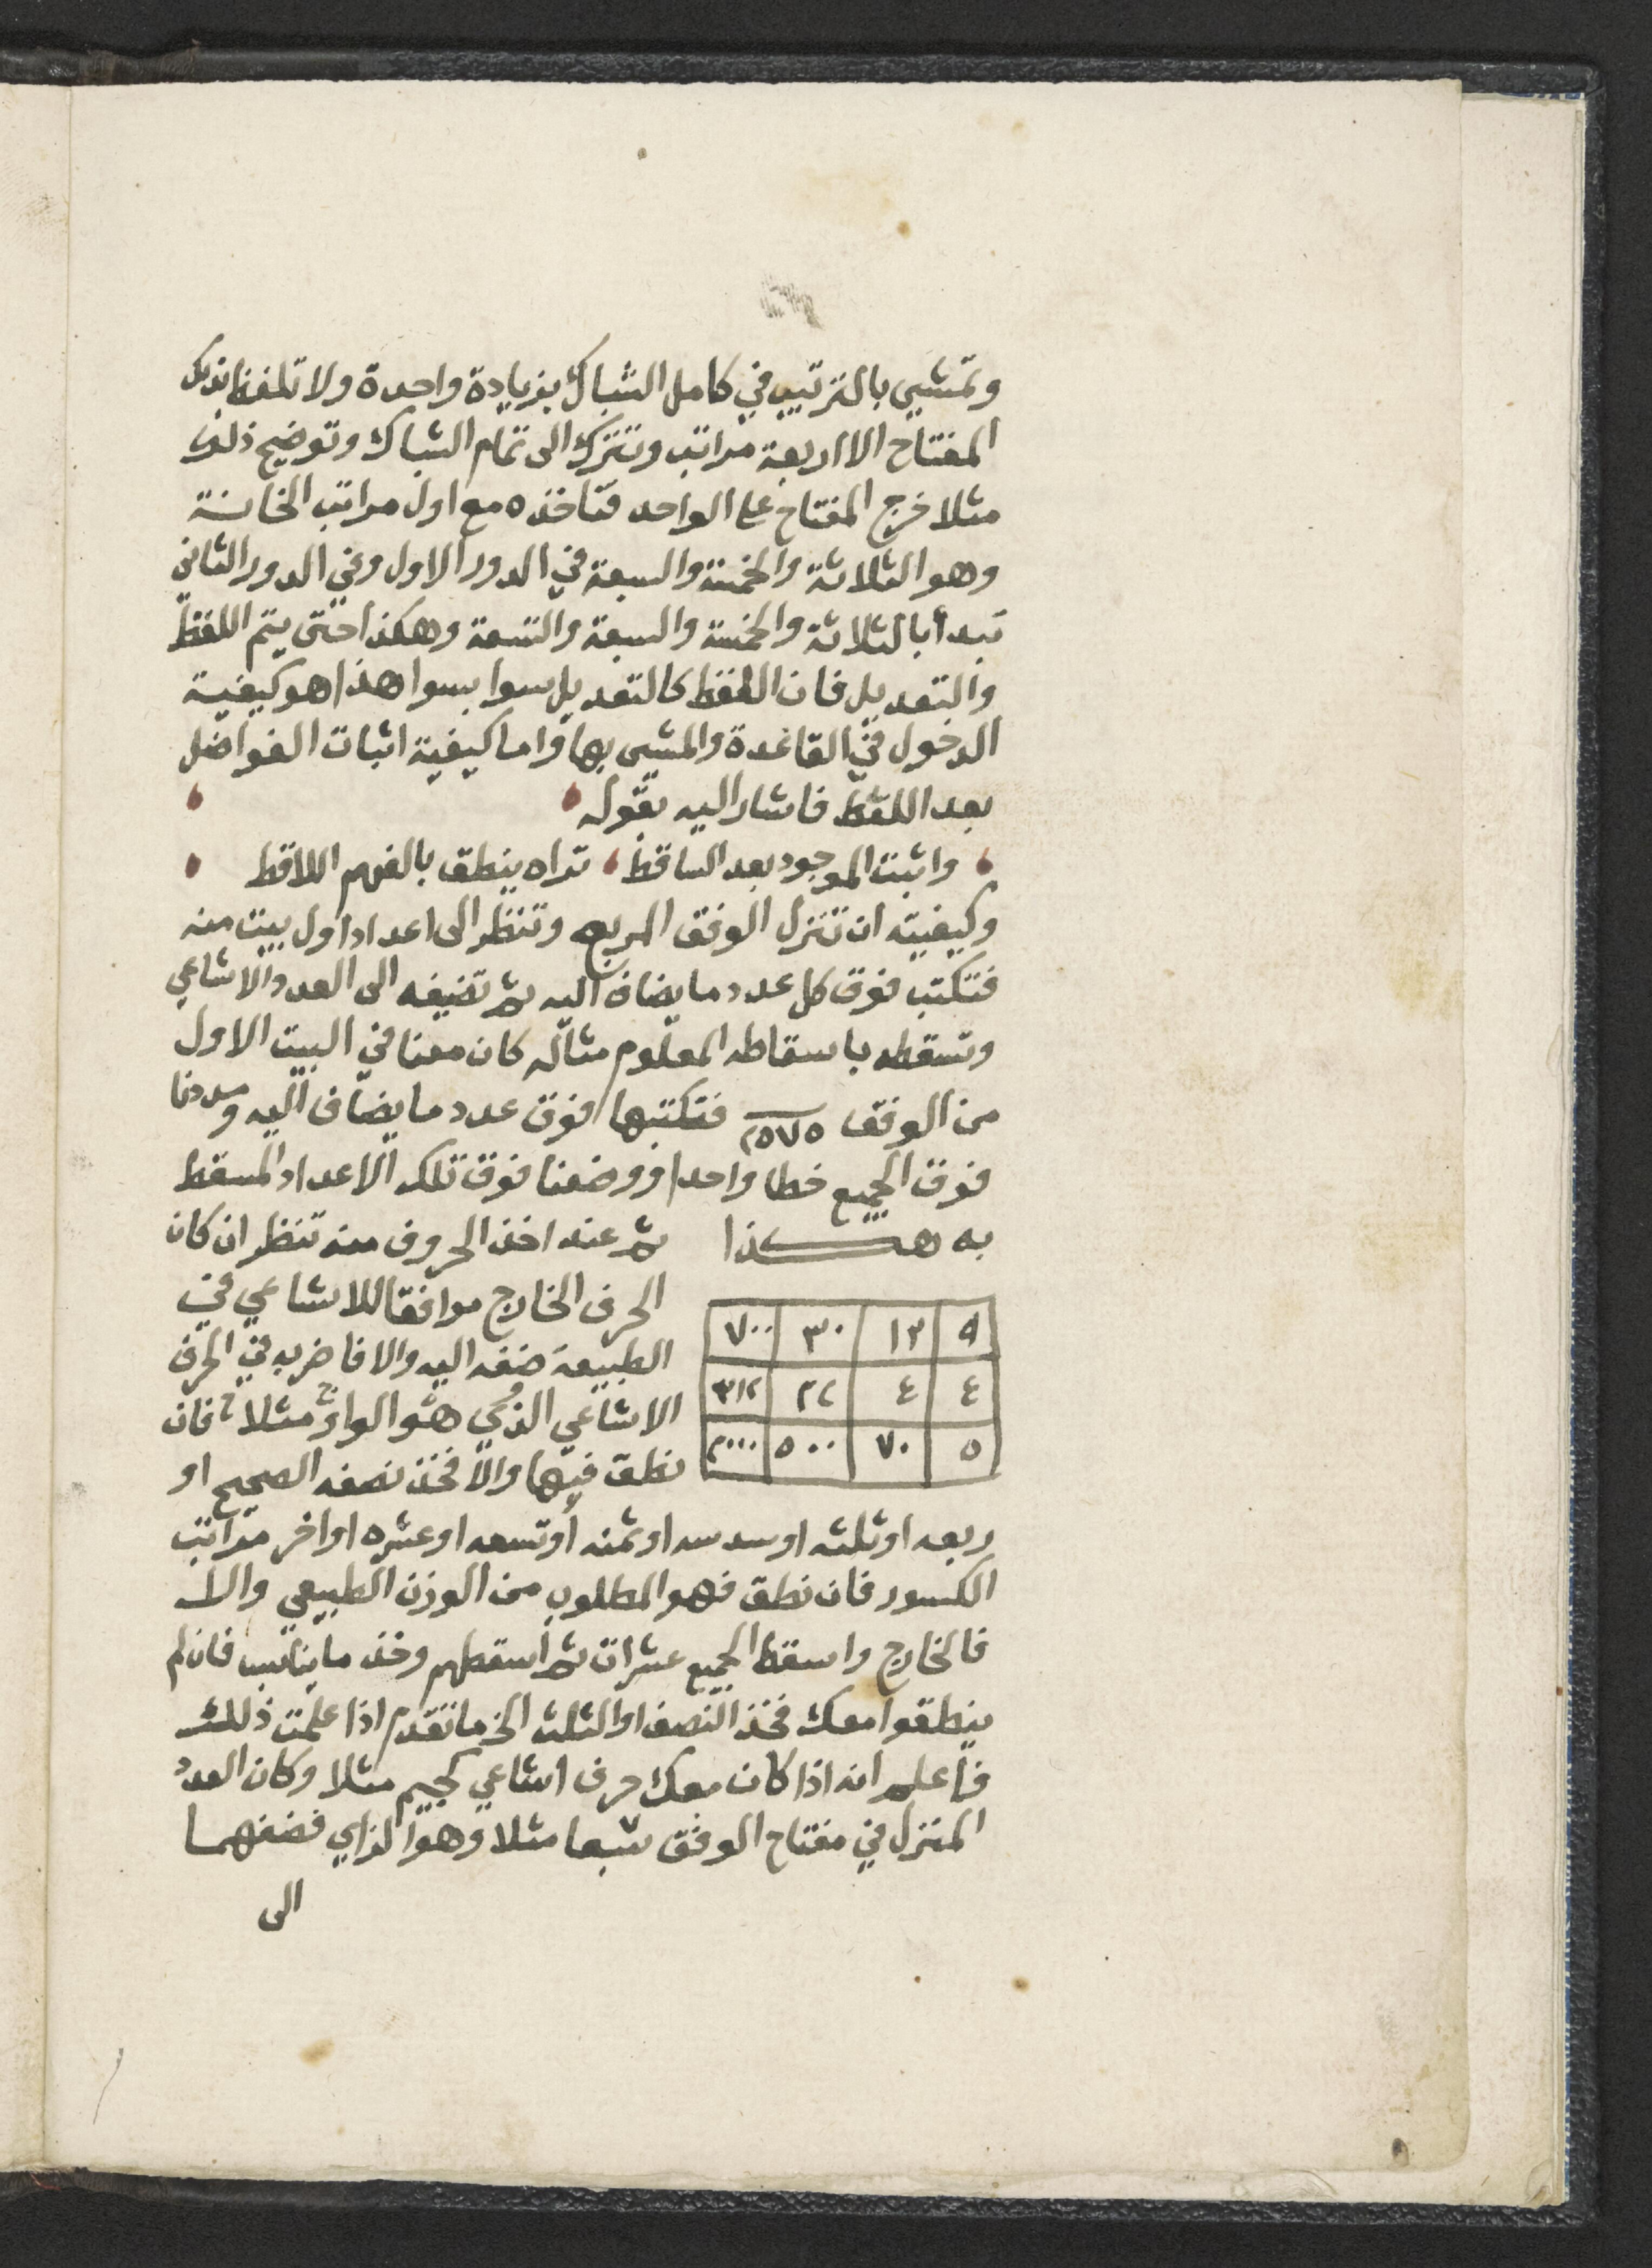 وتمشي بالترتيب في كامل الشباك بزيادة واحدة ولا تلفظ بذلك
المفتاح الا اربعة مراتب وتترك الى تمام الشباك وتوضيح ذلك
مثلا خرج المفتاح على الواحد فتاخذه مع اول مراتب الخانة
وهو الثلاثة والخمسة والسبعة في الدور الاول وفي الدور الثاني
تبدأ بالثلاثة والخمسة والسبعة والتسعة وهكذا حتى يتم اللقط
والتعديل فان اللقط كالتعديل سوا بسوا هذا هو كيفية
الدخول في القاعدة والمشي بها واما كيفية اثبات الفواضل
بعد اللقط فاشار اليه بقوله
واثبت الموجود بعد الساقط تراه ينطق بالفهم اللاقط
وكيفيته ان تنزل الوفق المربع وتنظر الى اعداد اول بيت منه
فتكتب فوق كل عدد ما يضاف اليه ثم تضيفه الى العدد الاشاعي
وتسقطه باسقاطه المعلوم مثاله كان معنا في البيت الاول
من الوفق ٢٥٧٥ فتكتبها فوق عدد ما يضاف اليه ومددنا
فوق الجميع خطا واحدا ووضعنا فوق تلك الاعداد المسقط
به هكذا ثم عند اخذ الحروف منه تنظر ان كان
الحرف الخارج موافقا للاشاعي في
الطبيعة ضفه اليه والا فاضربه في الحرف
الاشاعي الذي هو الواو مثلا فان
نطق فيها والا فخذ نصفه الصحيح او
٩ ١٣ ٣٠ ٧٠٠
٤ ٤ ٢٢ ٣١٢
٥ ٧٠ ٥٠٠ ٢٠٠٠
ربعه او ثلثه او سدسه او ثمنه أو تسعه او عشره او اخر مراتب
الكسور فان نطق فهو المطلوب من الوزن الطبيعي والا
فالخارج واسقط الجميع عشرات ثم اسقطهم وخذ ما يناسب فان لم
ينطقوا معك فخذ النصف او الثلث الخ ما تقدم اذا علمت ذلك
فاعلم انه اذا كان معك حرف اشاعي كجيم مثلا وكان العدد
المنزل في مفتاح الوفق سبعا مثلا وهو الزاي فضفهما
الى